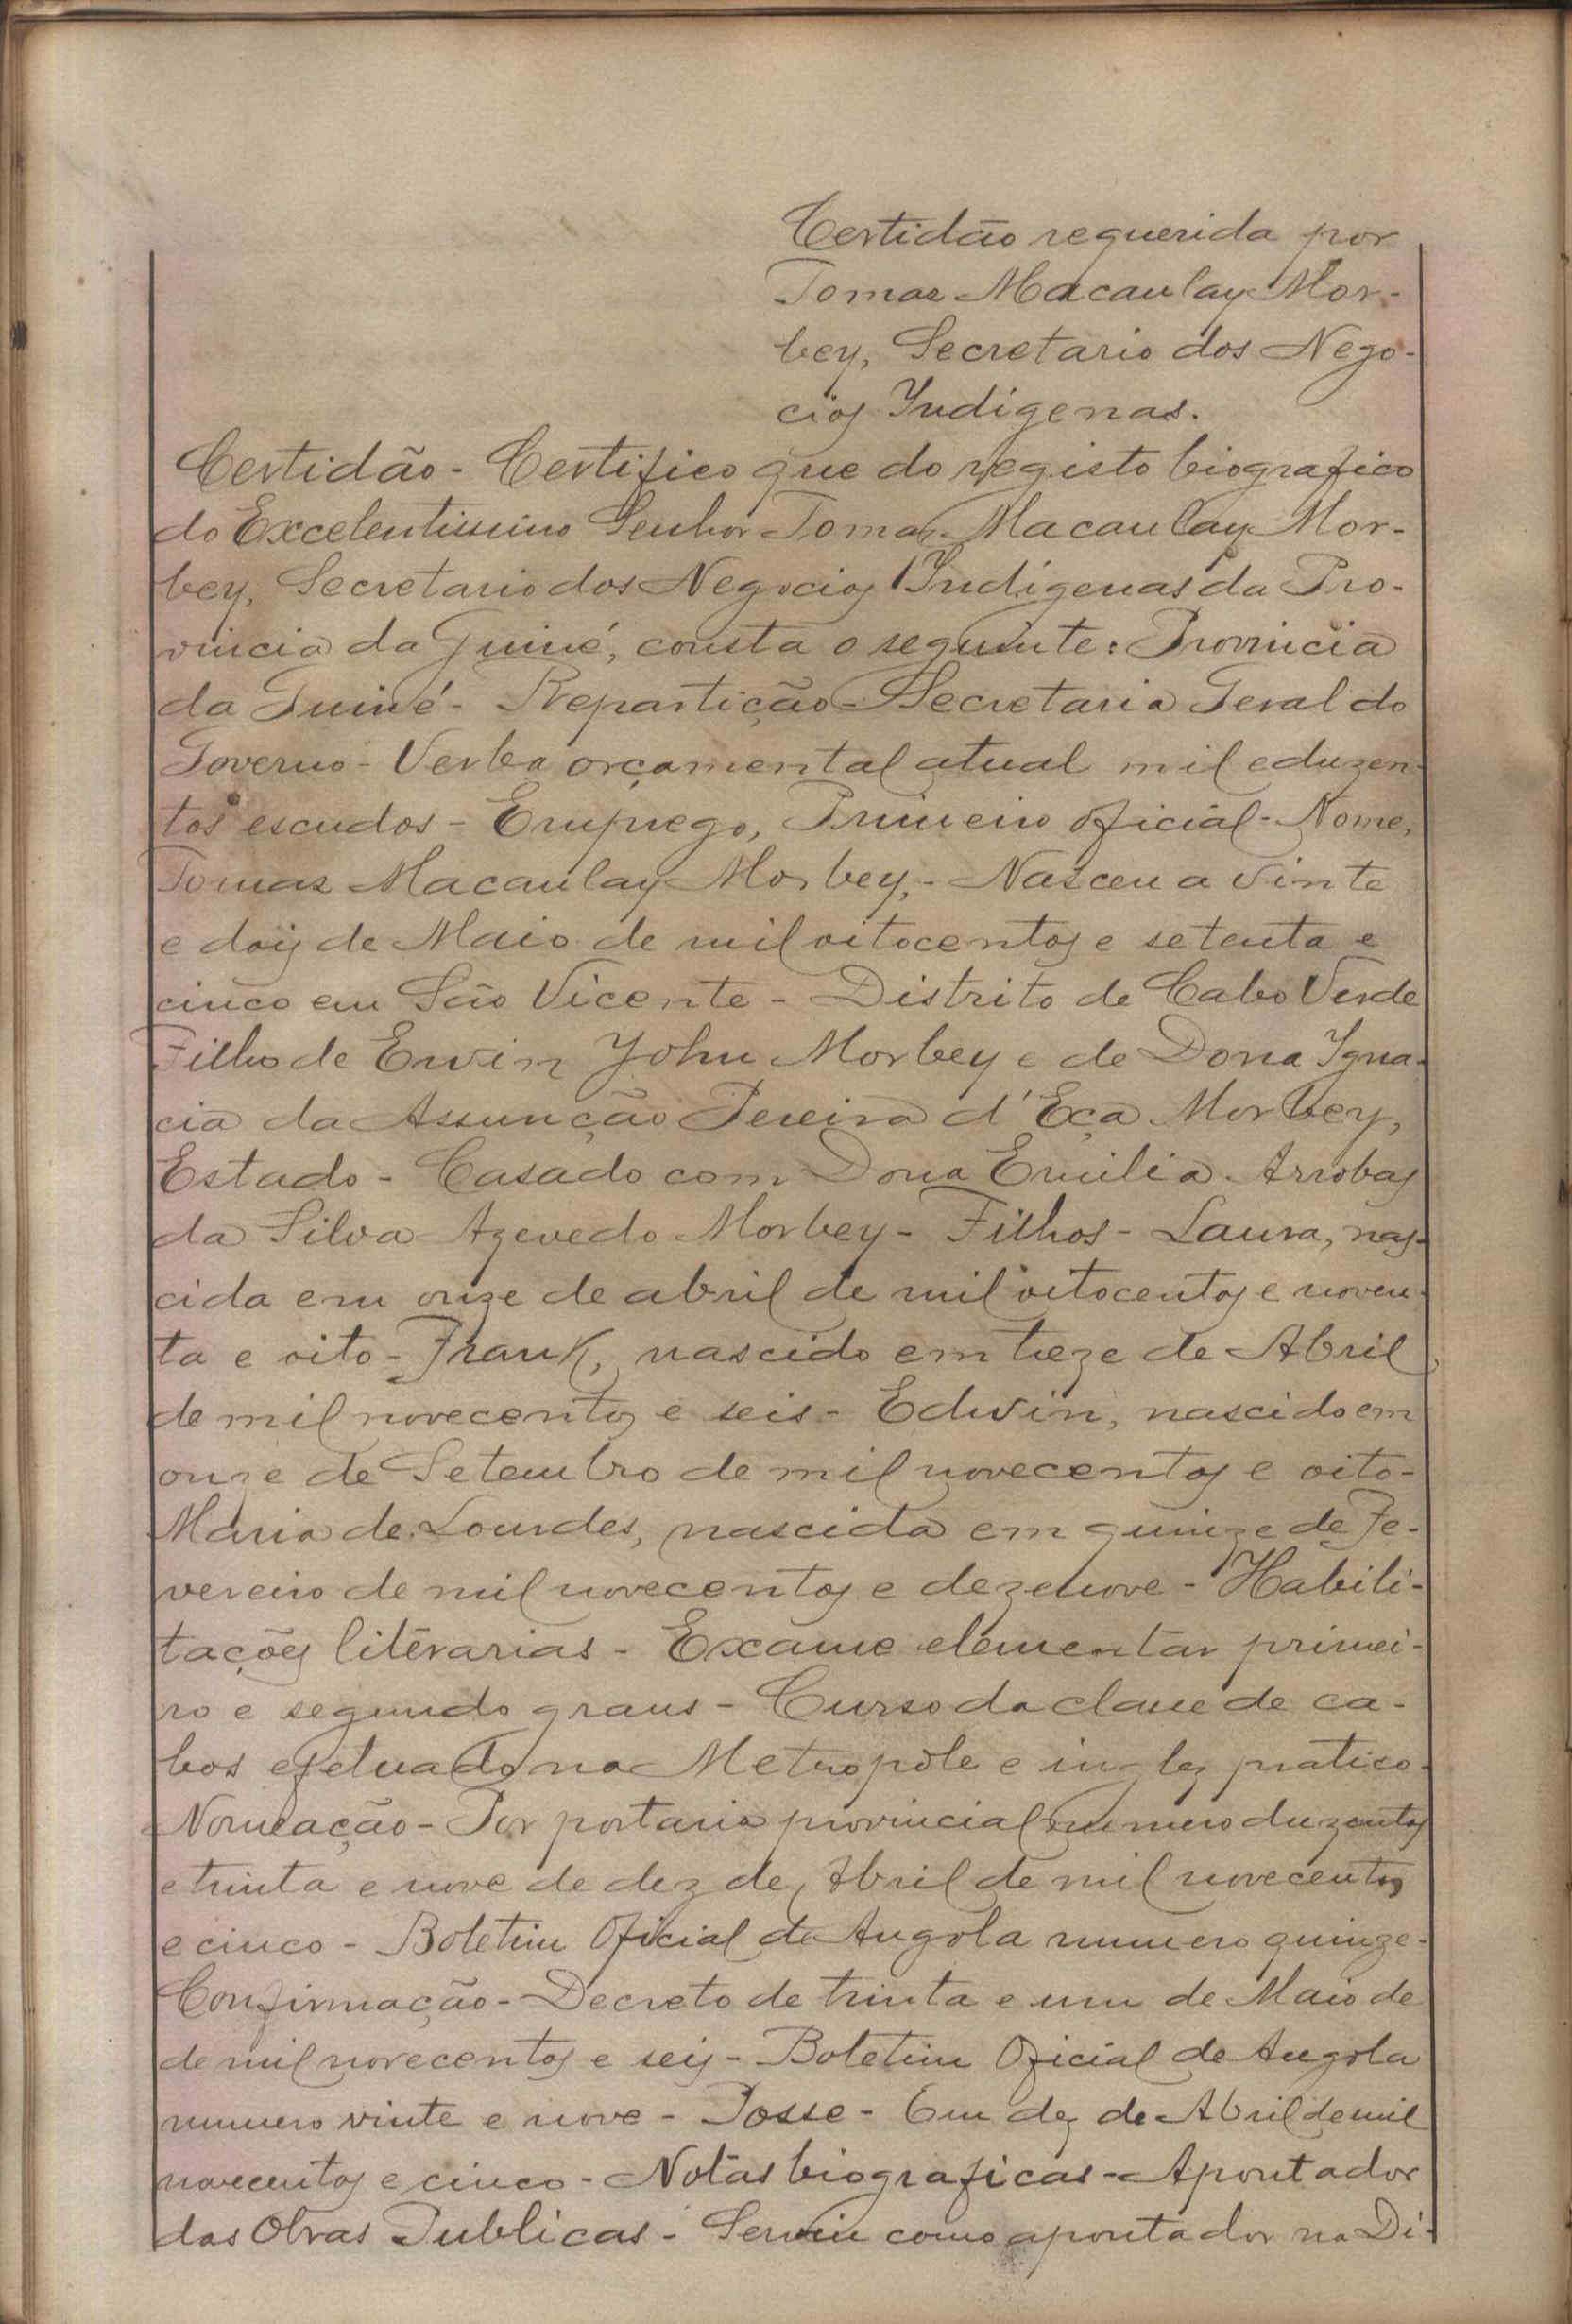 Certidão requerida por
Tomaz Macaulay Mor-
bey, Secretario dos Nego-
cios Indigenas.
Certidão - Certifico que do registo biografico
do Excelentissimo Senhor Tomaz Macaulay Mor-
bey, Secretario dos Negocios Indigenas da Pro-
vincia da Guiné, consta o seguinte: Provincia
da Guiné - Repartição - Secretaria Geral do
Governo - Verba orçamental atual mil e duzen-
tos escudos - Emprego, Primeiro oficial - Nome,
Tomaz Macaulay Morbey, - Nasceu a vinte
e dois de Maio de mil oitocentos e setenta e
cinco em São Vicente - Distrito de Cabo Verde
Filho de Ervin John Morbey e de Dona Igna-
cia da Assunção Pereira d'Eça Morbey,
Estado - Casado com Dona Emilia Arrobas
da Silva Azevedo Morbey - Filhos - Laura, nas-
cida em onze de abril de mil oitocentos e noven-
ta e oito - Frank, nascido em treze de Abril
de mil novecentos e seis - Edwin, nascido em
onze de Setembro de mil novecentos e oito -
Maria de Lourdes, nascida em quinze de Fe-
vereiro de mil novecentos e dezenove - Habili-
tações literarias - Exame elementar primei-
ro e segundo graus - Curso da classe de ca-
bos efetuado na Metropole e inglez pratico -
Nomeação - Por portaria provincial numero duzentos
e trinta e nove de dez de Abril de mil novecentos
e cinco - Boletim Oficial de Angola numero quinze -
Confirmação - Decreto de trinta e um de Maio de
de mil novecentos e seis - Boletim Oficial de Angola
numero vinte e nove - Posse - Em dez de Abril de mil
novecentos e cinco - Notas biograficas - Apontador
das Obras Publicas - Serviu como apontador na Di-